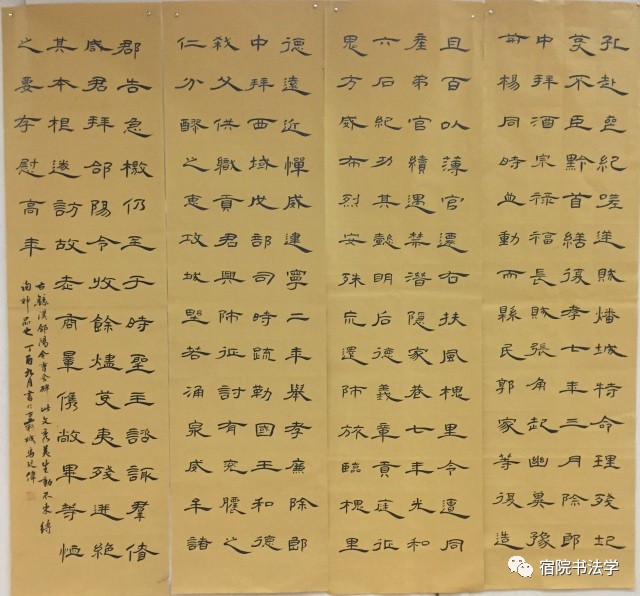 孔赴壑紀嗟逆賊燔城特命理殘圮
芟不臣黔首繕復孝七年三月除郎
中拜酒宗祿福長賊張角起幽冀豫
荊楊同時並動而縣民郭家等復造
且百以薄官遷右扶風槐里令遭同
產弟官續遇禁潛隱家巷七年光和
六石紀功其懿明后德義章貢庭征
鬼方威布烈安殊荒還師旅臨槐里
德遠近憚威建寧二年舉孝廉除郎
中拜西域戊部司時疏勒國王和德
弒父供職貢君興師征討有兗膿之
仁分醪之惠攻城野若涌泉威牟諸
郡告急檄仍至于時聖主諮諏群僚
咸君拜郃陽令收餘燼芟夷殘迸絕
其本根遂訪故老商量儁敞畢等恤
之要存慰高年
右臨漢郃陽令曹全碑 此文秀美生動不束縛
神品也 丁酉九月書於彭城馬廷偉
宿院书法学